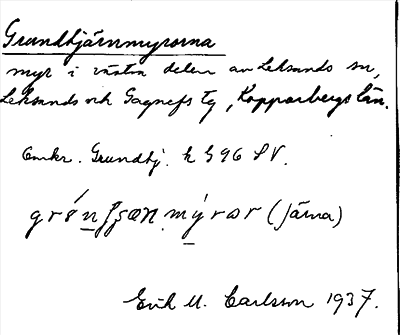 Grundtjärnmyrorna
myr i västra delen av Leksands sn,
Leksands och Gagnefs tg, Kopparbergs län.
Omkr. Grundtj. k 396 SV.
(Järna)
Erik M. Carlsson 1937.